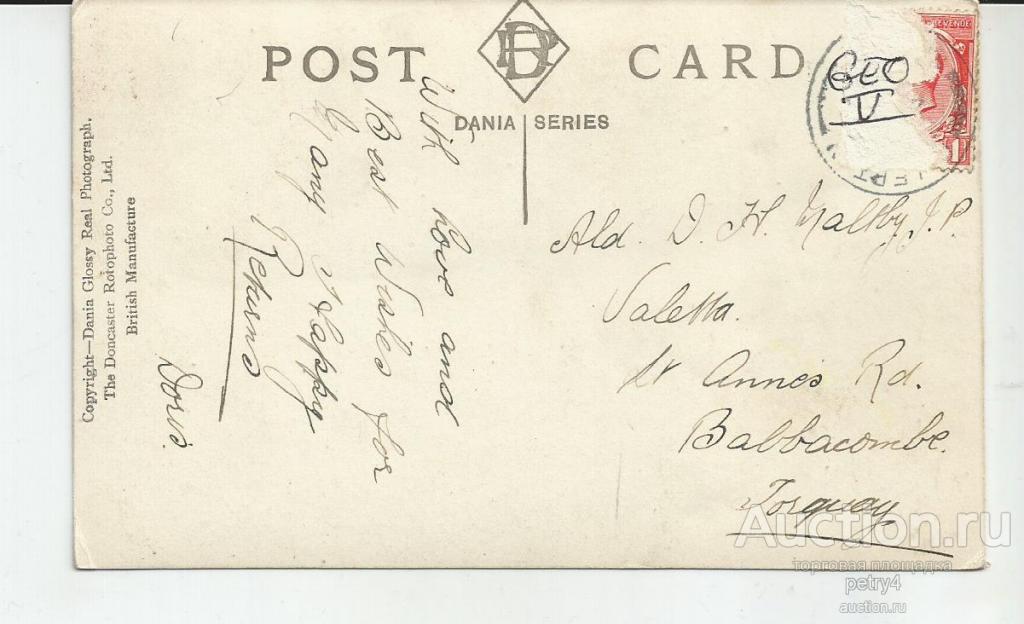 POST CARD
DR
DANIA SERIES
REVENUE
GEO
V
1
Copyright—Dania Glossy Real Photograph.
The Doncaster Rotophoto Co., Ltd.
British Manufacture
With Love and
Best Wishes for
Many Happy
Returns
Doris.
Ald. D. H. Maltby J.P.
Valetta.
St Annes Rd.
Babbacombe.
Torquay
Auction.ru
торговая площадка
petry4
auction.ru